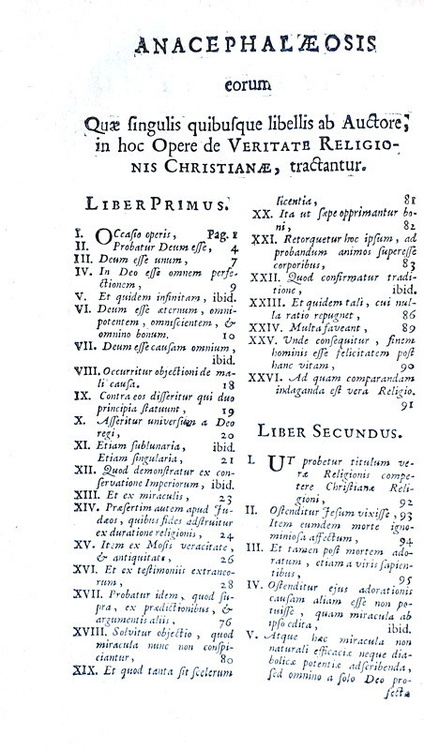 ANACEPHALÆOSIS
eorum
Quæ ſingulis quibuſque libellis ab Auctore,
in hoc Opere de VERITATE RELIGIO-
NIS CHRISTIANÆ, tractantur.
LIBER PRIMUS.
I. OCcaſio operis, Pag. 1
II. Probatur Deum eſſe, 4
III. Deum eſſe unum, 7
IV. In Deo eſſe omnem perfe-
ctionem, 9
V. Et quidem infinitam, ibid.
VI. Deum eſſe æternum, omni-
potentem, omniſcientem, &
omnino bonum. 10
VII. Deum eſſe cauſam omnium,
ibid.
VIII. Occurritur objectioni de ma-
li cauſa. 18
IX. Contra eos diſſeritur qui duo
principia ſtatuunt, 19
X. Aſſeritur universum a Deo
regi, 20
XI. Etiam ſublunaria, ibid.
Etiam ſingularia, 21
XII. Quod demonſtratur ex con-
ſervatione Imperiorum, ibid.
XIII. Et ex miraculis, 23
XIV. Præſertim autem apud Ju-
dæos, quibus fides adſtruitur
ex duratione religionis, 24
XV. Item ex Moſis veracitate,
& antiquitate, 26
XVI. Et ex teſtimoniis extraneo-
rum, 28
XVII. Probatur idem, quod ſu-
pra, ex prædictionibus, &
argumentis aliis, 76
XVIII. Solvitur objectio, quod
miracula nunc non conſpi-
ciantur, 80
XIX. Et quod tanta ſit ſcelerum
licentia, 81
XX. Ita ut ſæpe opprimantur bo-
ni, 82
XXI. Retorquetur hoc ipſum, ad
probandum animos ſupereſſe
corporibus, 83
XXII. Quod confirmatur tradi-
tione, ibid.
XXIII. Et quidem tali, cui nul-
la ratio repugnet, 86
XXIV. Multa faveant, 89
XXV. Unde conſequitur, finem
hominis eſſe felicitatem poſt
hanc vitam, 90
XXVI. Ad quam comparandam
indaganda eſt vera Religio.
91
LIBER SECUNDUS.
I. UT probetur titulum ve-
ræ Religionis compe-
tere Chriſtianæ Reli-
gioni, 92
II. Oſtenditur Jeſum vixiſſe, 93
Item eumdem morte igno-
minioſa affectum, 94
III. Et tamen poſt mortem ado-
ratum, etiam a viris ſapien-
tibus, 95
IV. Oſtenditur ejus adorationis
cauſam aliam eſſe non po-
tuiſſe, quam miracula ab
ipſo edita, ibid.
V. Atque hæc miracula non
naturali efficaciæ neque dia-
bolicæ potentiæ adſcribenda,
ſed omnino a ſolo Deo pro-
fecta